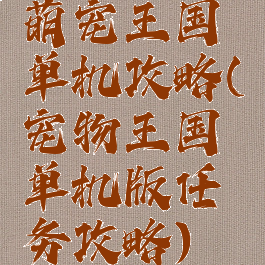 萌宠王国
单机攻略(
宠物王国
单机版任
务攻略)